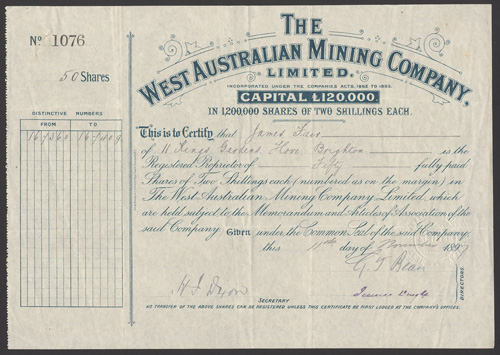 No 1076
50 Shares
DISTINCTIVE NUMBERS
FROM TO
THE
WEST AUSTRALIAN MINING COMPANY,
LIMITED.
INCORPORATED UNDER THE COMPANIES ACTS, 1862 TO 1893.
CAPITAL £120,000.
IN 1,200,000 SHARES OF TWO SHILLINGS EACH.
This is to Certify that James
of 11 Kings Gardens Hove Brighton is the
Registered Proprietor of Fifty fully paid
Shares of Two Shillings each (numbered as on the margin) in
The West Australian Mining Company, Limited, which
are held subject to the Memorandum and Articles of Association of the
said Company. Given under the Common Seal of the said Company,
this day of November 1897
SECRETARY
DIRECTORS.
NO TRANSFER OF THE ABOVE SHARES CAN BE REGISTERED UNLESS THIS CERTIFICATE BE FIRST LODGED AT THE COMPANY'S OFFICES.